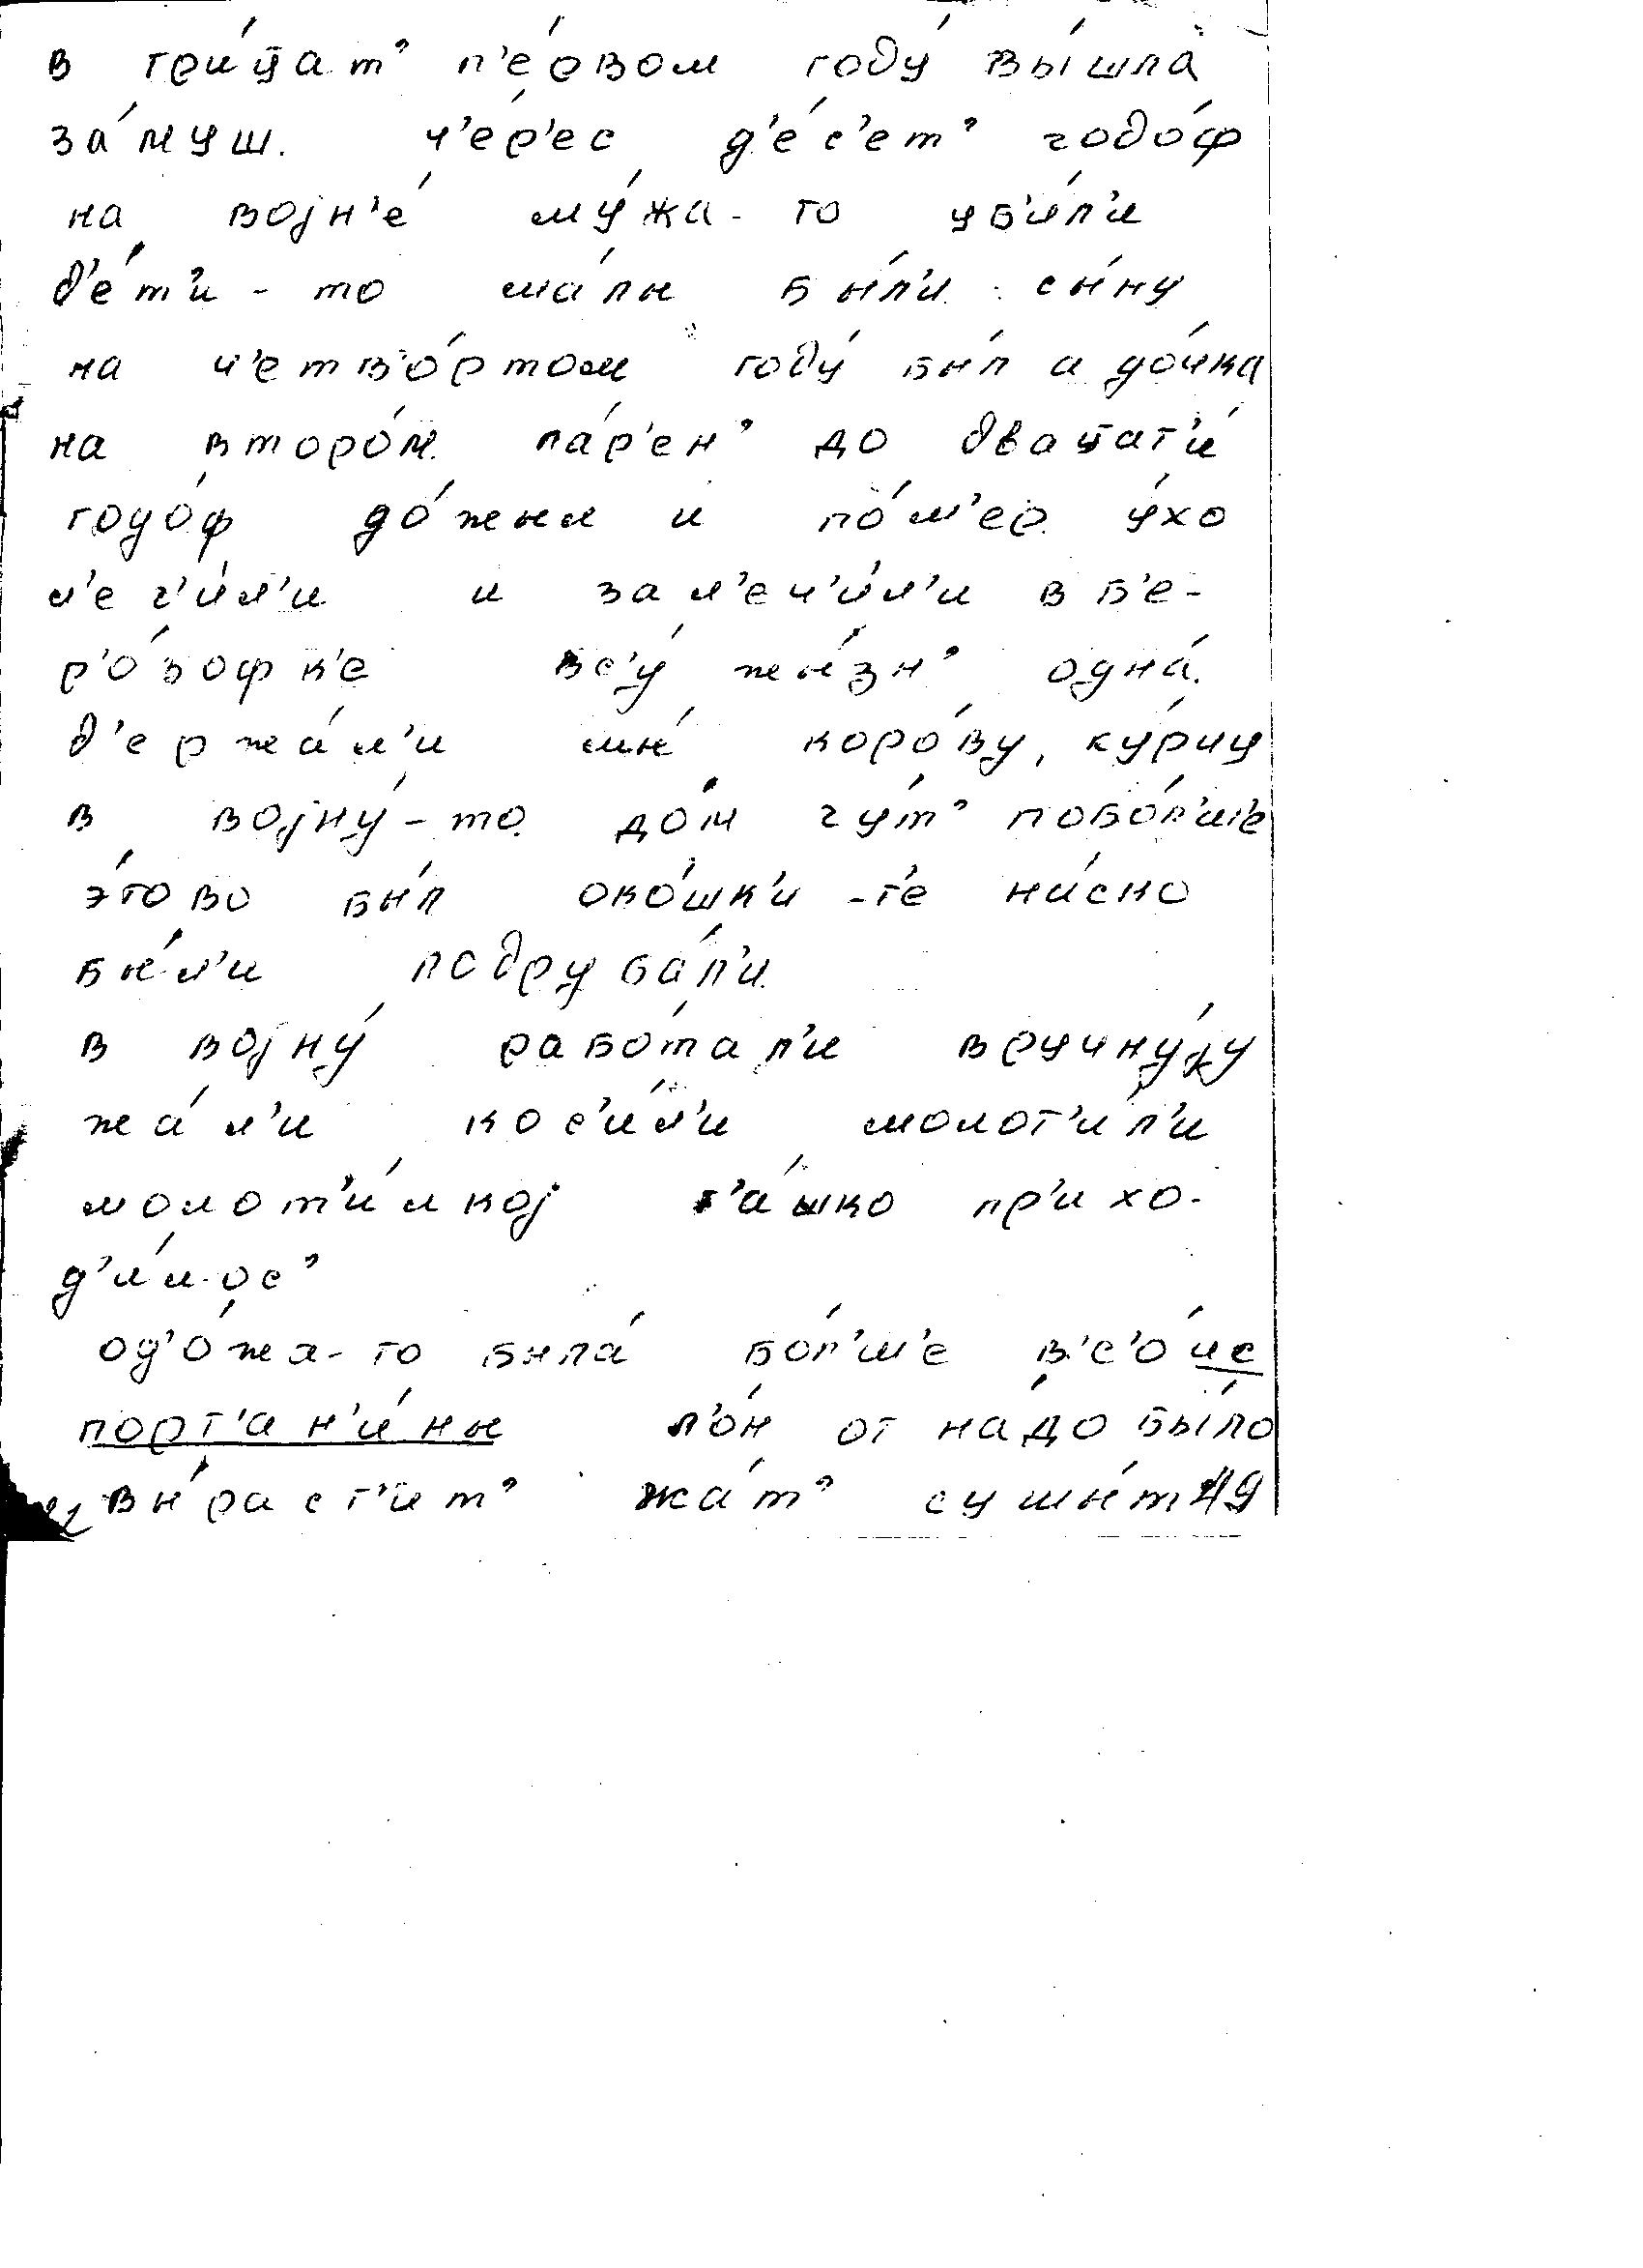 в три́ц̄ат' п'е́рвом году́ вы́шла
за́муш. ч'е́р'ес д'е́с'ет' годо́ф
на војн'е́ му́жа-то уб'и́л'и
д'е́т'и-то ма́лы бы́л'и. сы́ну
на ч'етв'о́ртом году́ бы́л а до́чка
на второ́м. па́р'ен' до двац̄ат'и́
годо́ф до́жыл и по́м'ер. у́хо
л'еч'и́л'и и зал'еч'и́л'и в Б'е-
р'о́зофк'е вс'у́ жы́зн' одна́.
д'ержа́л'и мы́ коро́ву, ку́рицу
в војну́-то. до́м чу́т' побо́л'ш'е
э́тово бы́л око́шк'и-т'е ни́ско
бы́л'и подруба́л'и.
в војну́ рабо́тал'и вручну́јку
жа́л'и кос'и́л'и молот'и́л'и
молот'и́лкој т'а́шко пр'ихо-
д'и́лос'
од'о́жа-то была́ бо́л'ш'е в.с'о́ ис
порт'ан'и́ны л'о́н от на́до бы́ло
вы́раст'ит' жа́т' сушы́т'